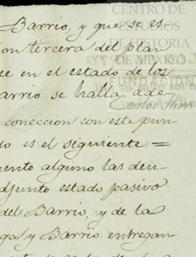 Barrio, y que se es
on tercera del plan
te en el estado de los
arrio se halla ade
coneccion con este pun
do es el siguiente. =
ento alguno las deu
djunto estado pasivo
del Barrio, y de la
ga y Barrio entregan
CENTRO DE
ESTUDIOS
DE HISTORIA
DE MEXICO
FUNDACIÓN
Carlos Slim